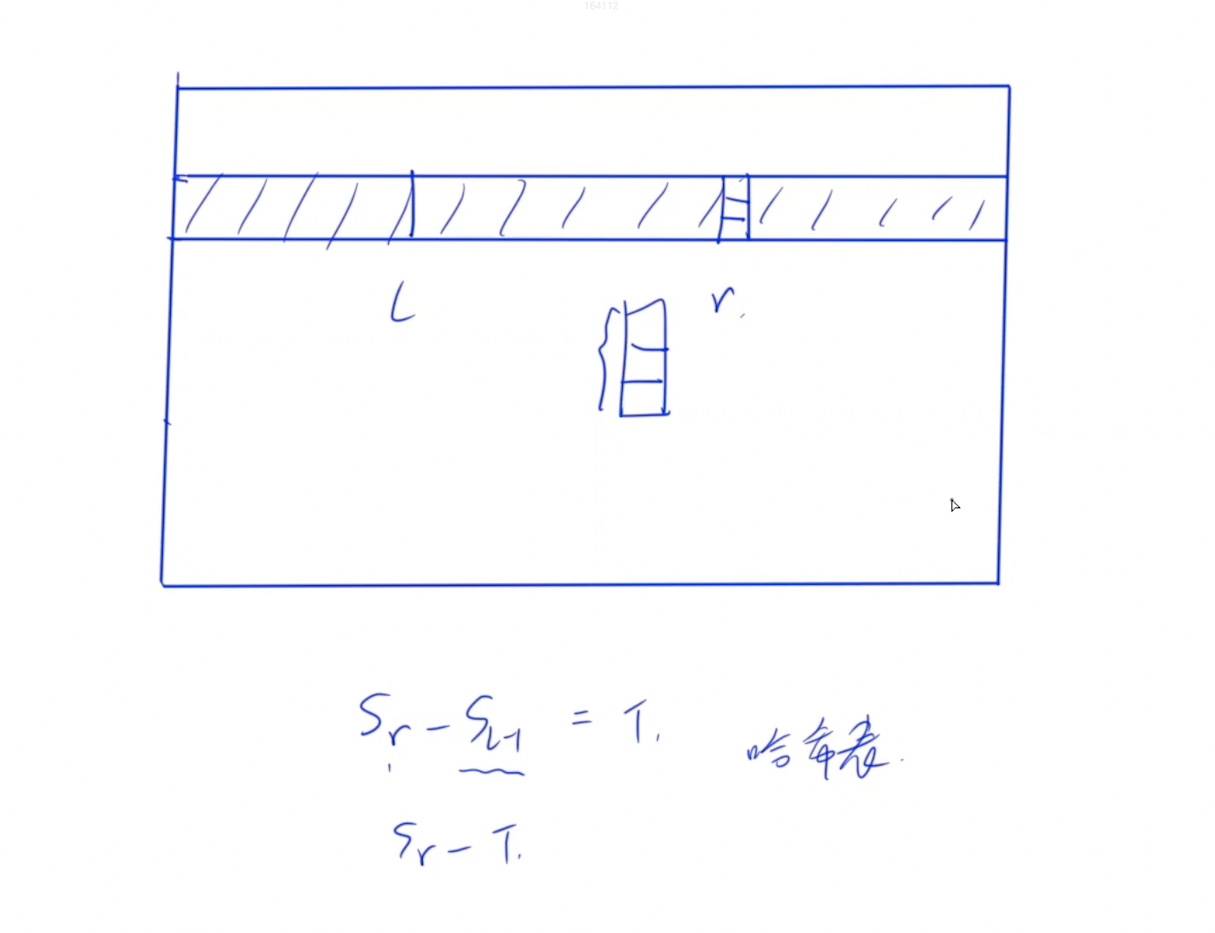 164112
L
r.
Sr - SL-1 = T. 哈希表.
Sr - T.